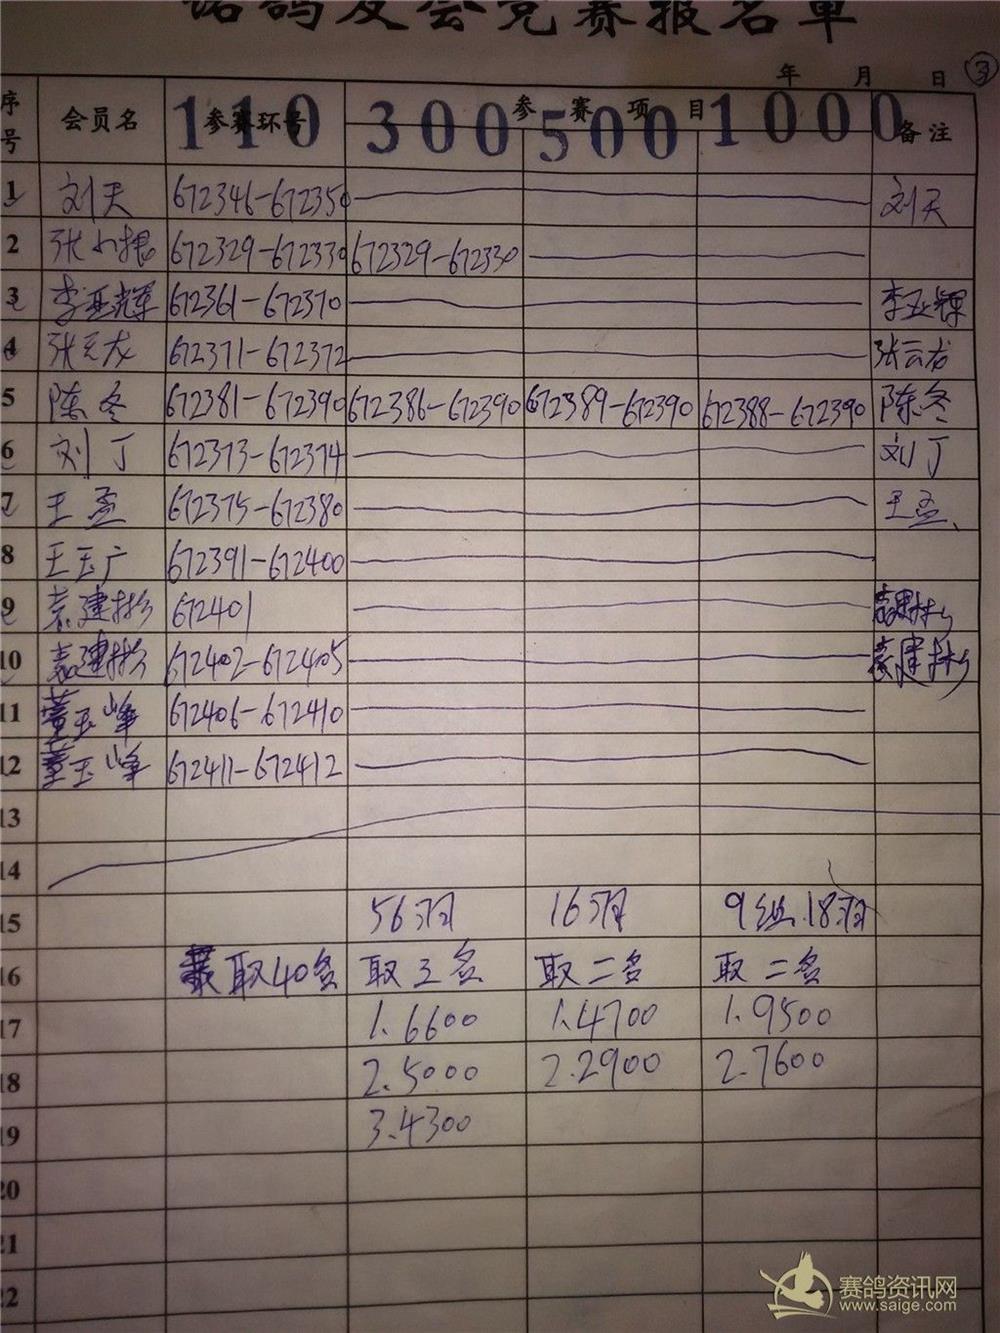 诺鸽友会竞赛报名单
年 月 日 ③
序号 会员名 参赛环号 参赛项目 备注
110 300 500 1000
1 刘天 672346-672350 刘天
2 张小根 672329-672330 672329-672330
3 李亚辉 672361-672370 李亚辉
4 张云龙 672371-672372 张云龙
5 陈冬 672381-672390 672386-672390 672389-672390 672388-672390 陈冬
6 刘丁 672373-672374 刘丁
7 王孟 672375-672380 王孟
8 王玉广 672391-672400
9 袁建彬 672401 袁建彬
10 袁建彬 672402-672405 袁建彬
11 董玉峰 672406-672410
12 董玉峰 672411-672412
13
14
15 56羽 16羽 9组.18羽
16 取40名 取三名 取二名 取二名
17 1.6600 1.4700 1.9500
18 2.5000 2.2900 2.7600
19 3.4300
20
21
22
赛鸽资讯网
www.saige.com